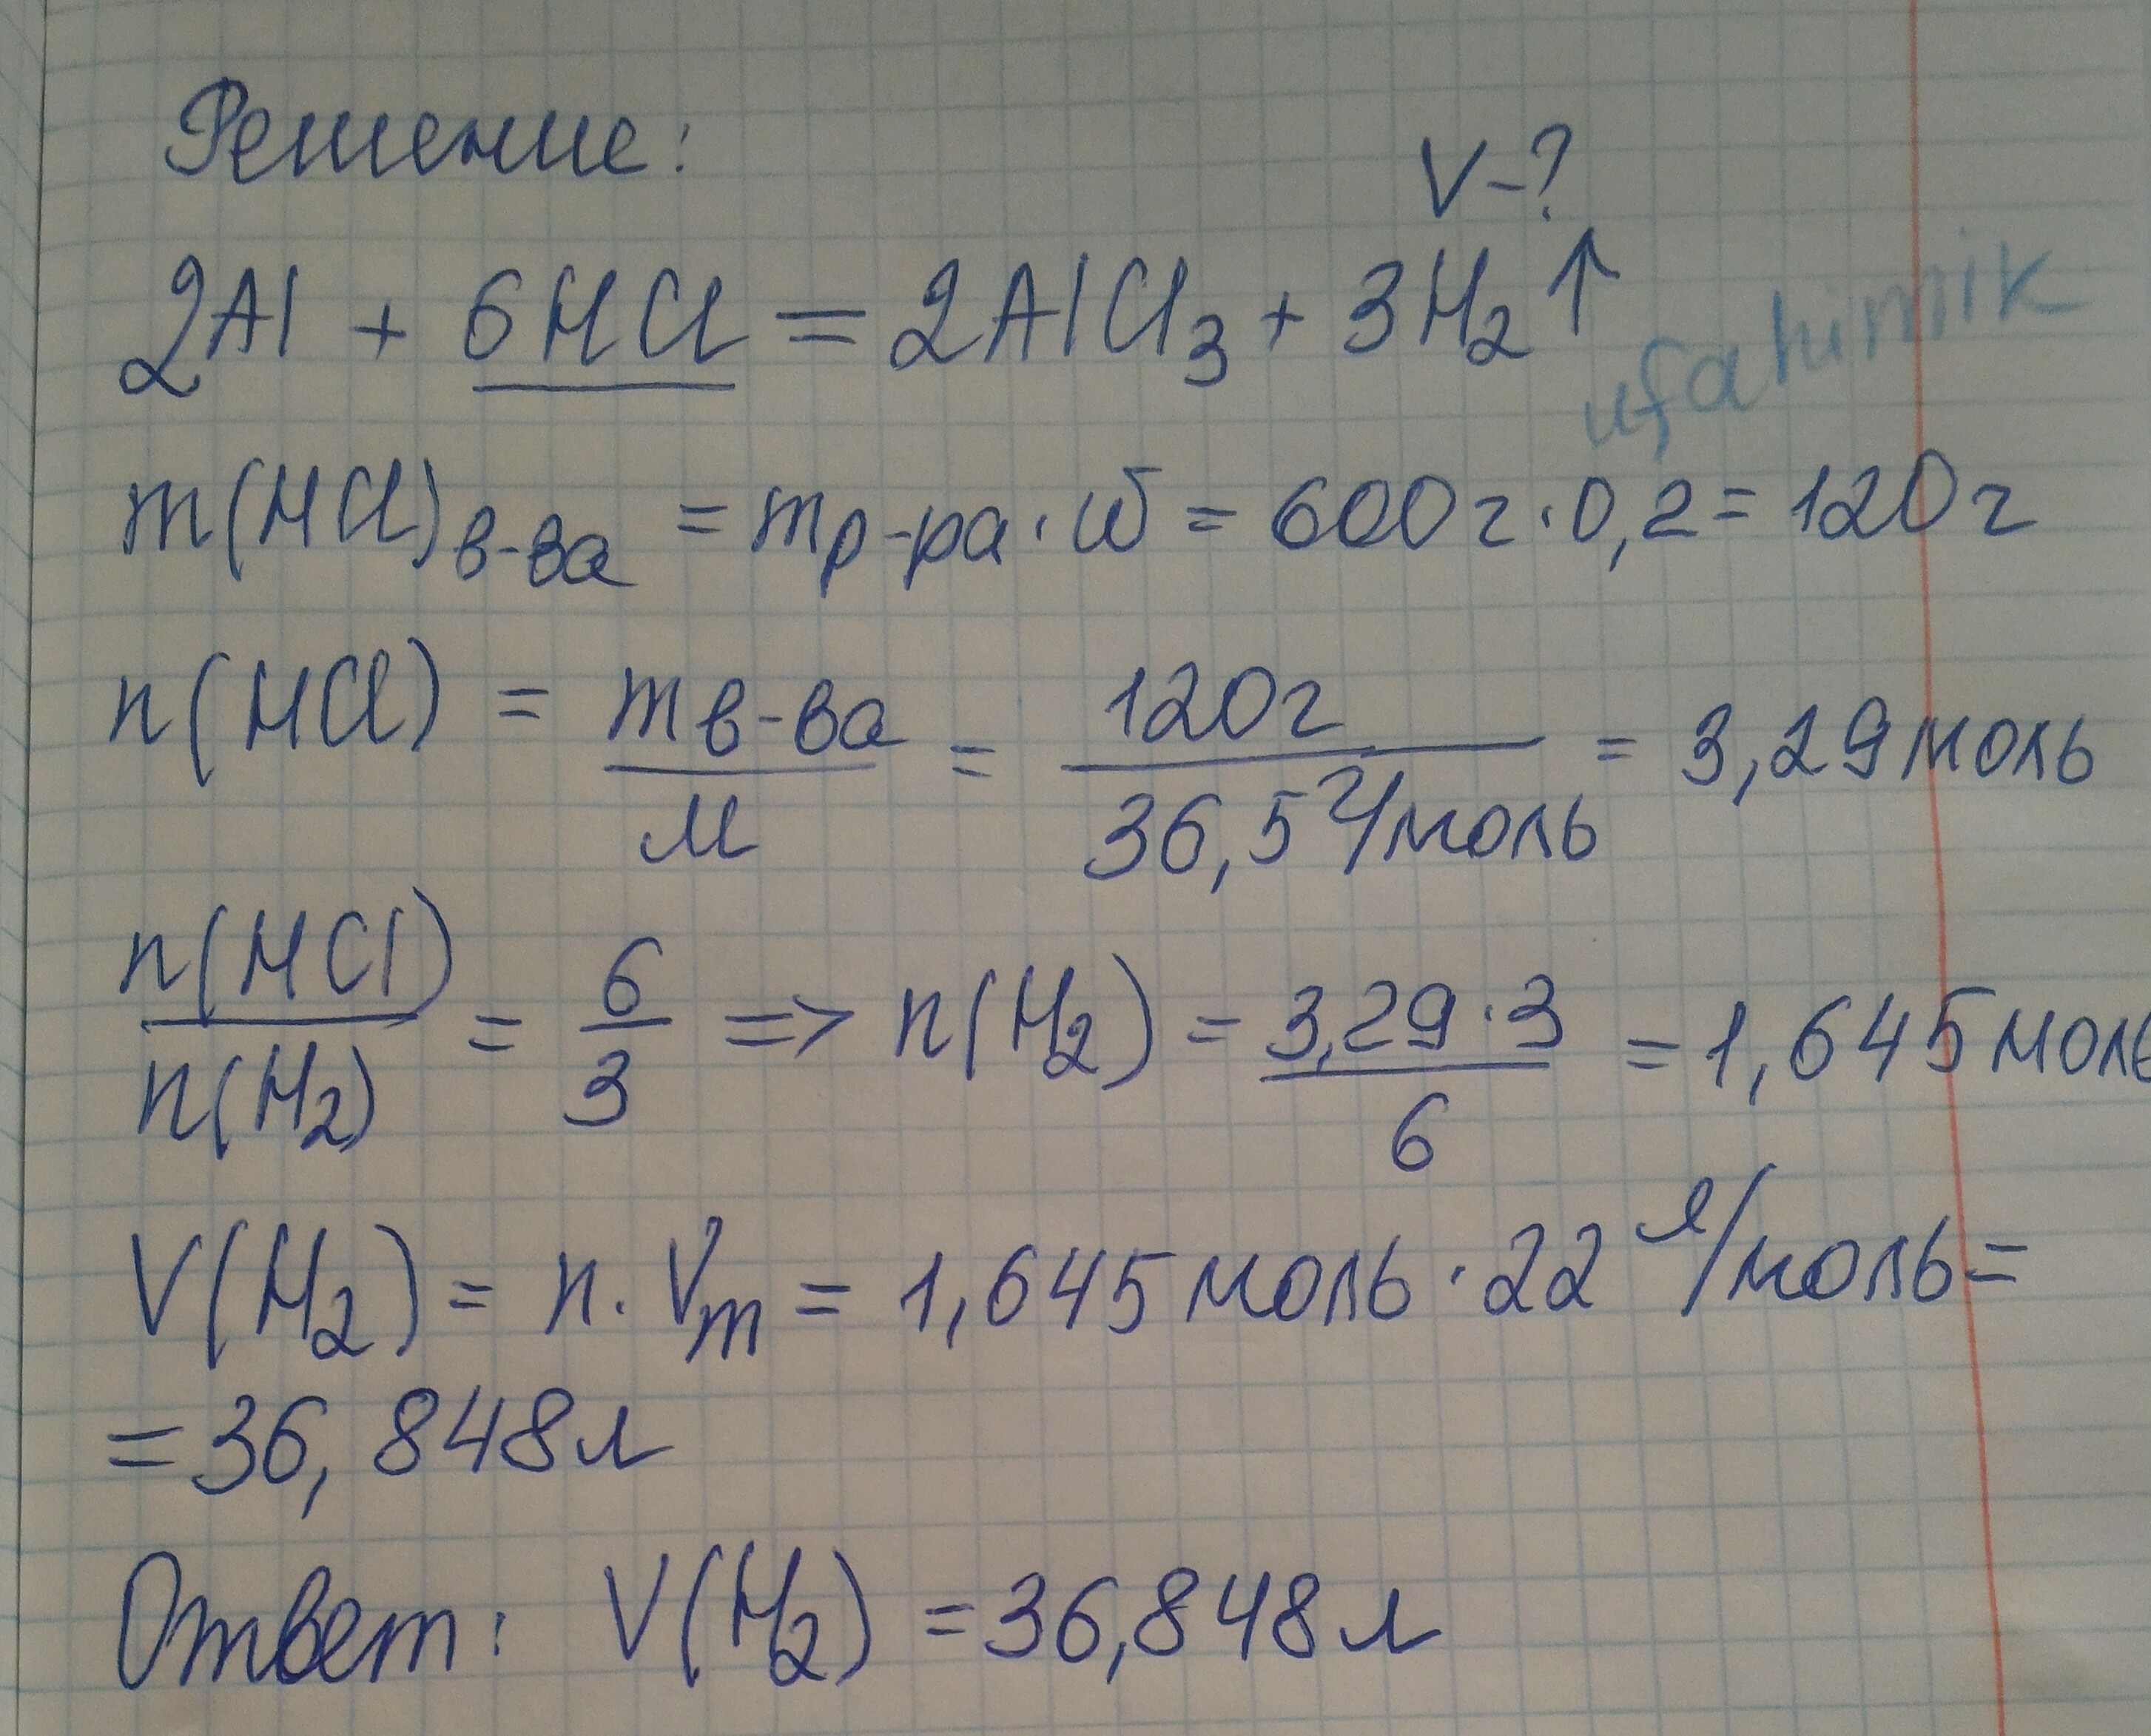 Решение:
V-?
2Al + 6HCl = 2AlCl₃ + 3H₂↑
ufahimik
m(HCl)в-ва = mр-ра · ω = 600г · 0,2 = 120г
n(HCl) = mв-ва / M = 120г / 36,5 г/моль = 3,29 моль
n(HCl) / n(H₂) = 6/3 => n(H₂) = 3,29 · 3 / 6 = 1,645 моль
V(H₂) = n · Vm = 1,645 моль · 22 л/моль =
= 36,848 л
Ответ: V(H₂) = 36,848 л